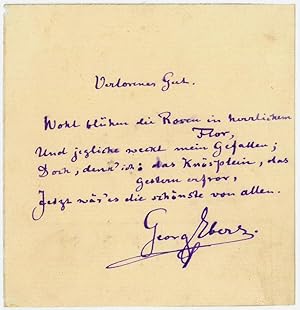 Verlorenes Gut.
Wohl blühen die Rosen in herrlichem
Flor,
Und jegliche weckt mein Gefallen;
Doch, denk' ich: das Knösplein, das
gestern erfror,
Jetzt wär' es die schönste von allen.
Georg Ebers.